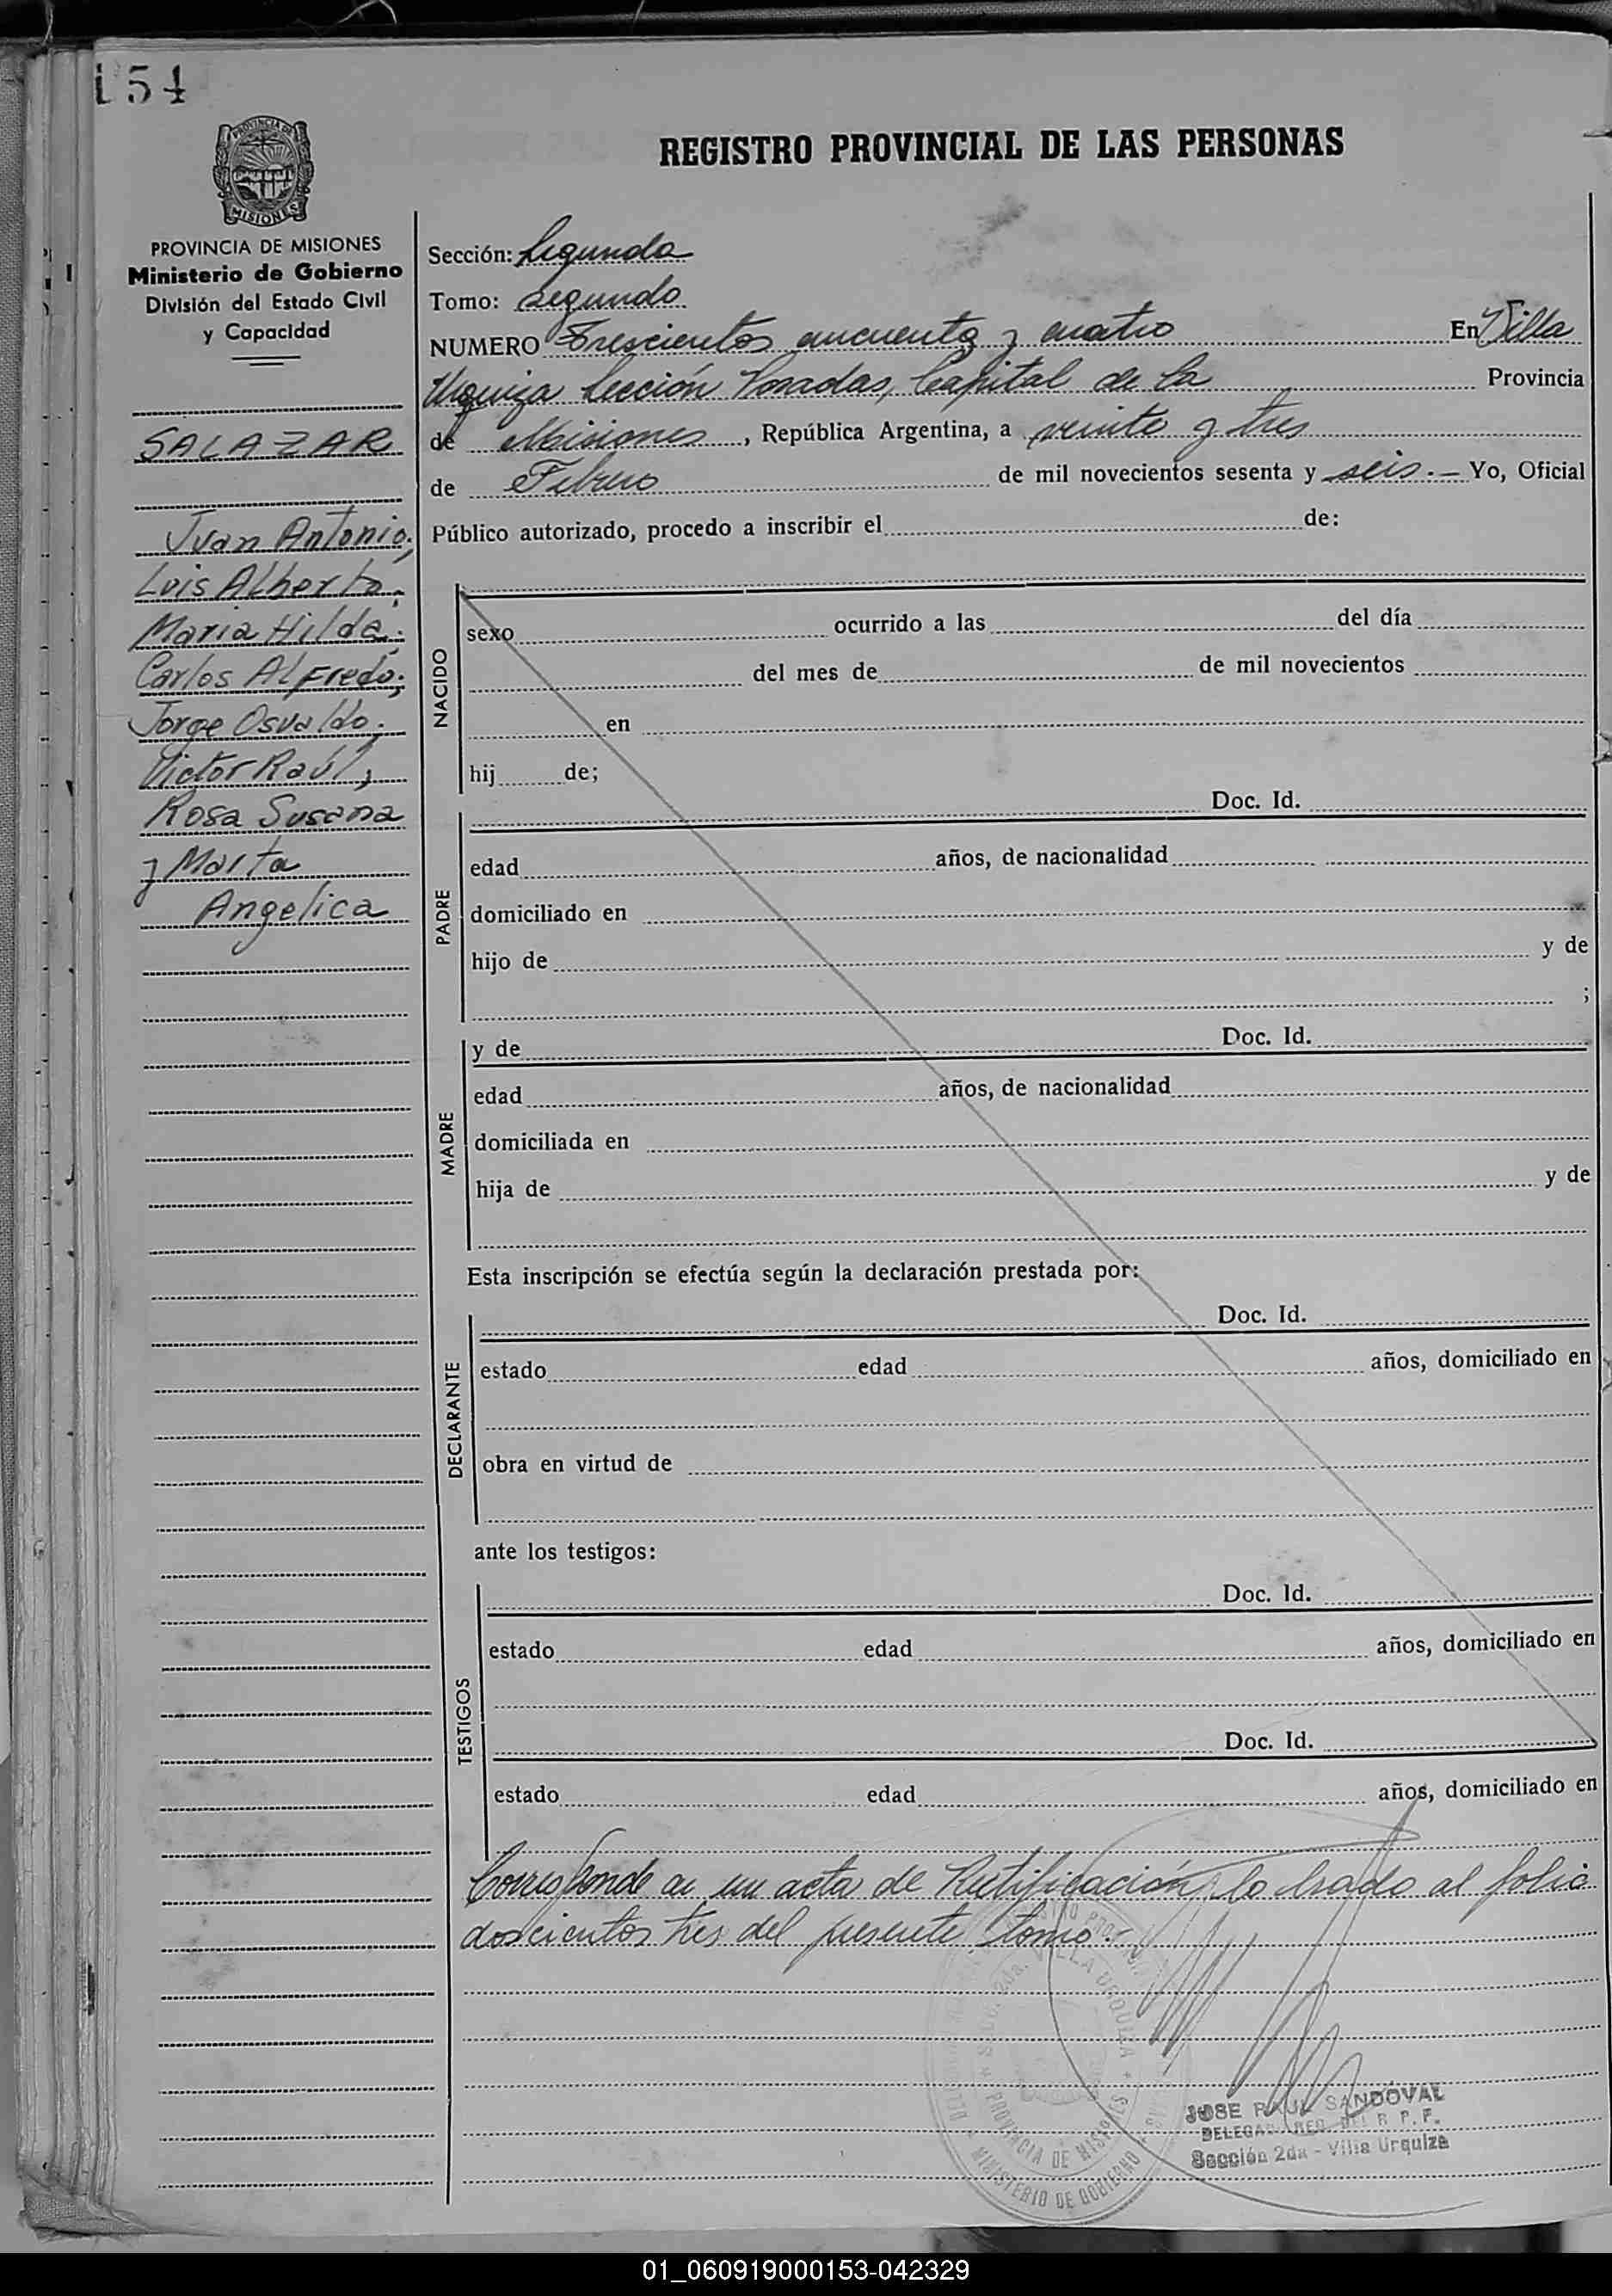 154
REGISTRO PROVINCIAL DE LAS PERSONAS
PROVINCIA DE MISIONES
PROVINCIA DE MISIONES
Ministerio de Gobierno
División del Estado Civil
y Capacidad
SALAZAR
Juan Antonio;
Luis Alberto;
Maria Hilda;
Carlos Alfredo;
Jorge Osvaldo;
Victor Raúl,
Rosa Susana
y Marta
Angelica
Sección: Segunda
Tomo: Segundo
NUMERO Trescientos cincuenta y cuatro En Villa
Urquiza Sección Posadas, Capital de la Provincia
de Misiones, República Argentina, a veinte y tres
de Febrero de mil novecientos sesenta y seis.- Yo, Oficial
Público autorizado, procedo a inscribir el de:
NACIDO
sexo ocurrido a las del día
del mes de de mil novecientos
en
hij de;
PADRE
Doc. Id.
edad años, de nacionalidad
domiciliado en
hijo de y de
;
MADRE
y de Doc. Id.
edad años, de nacionalidad
domiciliada en
hija de y de
Esta inscripción se efectúa según la declaración prestada por:
DECLARANTE
Doc. Id.
estado edad años, domiciliado en
obra en virtud de
ante los testigos:
TESTIGOS
Doc. Id.
estado edad años, domiciliado en
Doc. Id.
estado edad años, domiciliado en
Corresponde a un acta de Rectificación, labrado al folio
doscientos tres del presente tomo.-
VILLA URQUIZA
PROVINCIA DE MISIONES
MINISTERIO DE GOBIERNO
JOSE RAUL SANDOVAL
DELEGADO REG. DEL R. P. P.
Sección 2da - Villa Urquiza
01_060919000153-042329